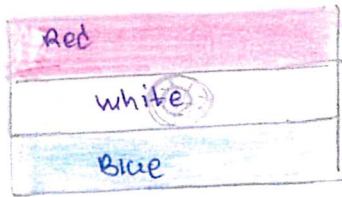 Red
white
Blue